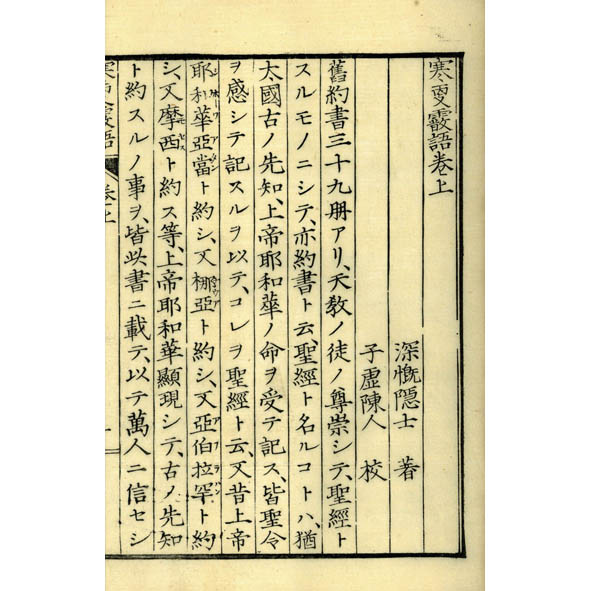 寒更霰語卷上
深慨隱士 著
子虛陳人 校
舊約書三十九册アリ、天教ノ徒ノ尊崇シテ、聖經ト
スルモノニシテ、亦約書ト云、聖經ト名ルコトハ、猶
太國古ノ先知、上帝耶和華ノ命ヲ受テ記ス、皆聖令
ヲ感シテ記スルヲ以テ、コレヲ聖經ト云、又昔上帝
耶和華亞當ト約シ、又梛亞ト約シ、又亞伯拉罕ト約
シ、又摩西ト約ス等、上帝耶和華顯現シテ、古ノ先知
ト約スルノ事ヲ、皆此書ニ載テ、以テ萬人ニ信セシ